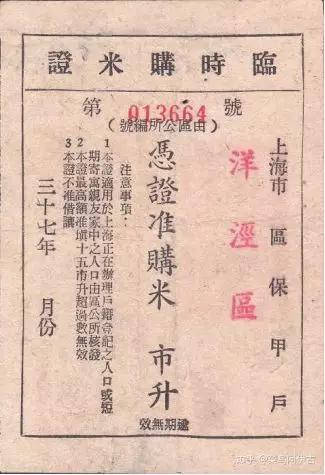 臨時購米證
第 013664 號
(由區公所編號)
上海市 區 保 甲 戶
洋涇區
憑證准購米 市升
逾期無效
注意事項：
1本證適用於上海正在辦理戶籍登記之人口或短
期寄寓親友家中之人口由區公所核發
2本證最高額准填十五市升超過數無效
3本證不准借讓
三十七年 月份
知乎